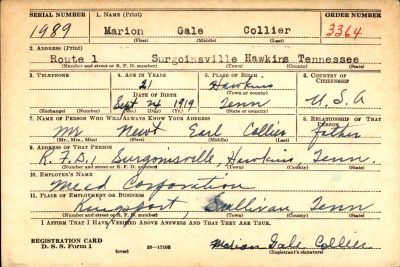 SERIAL NUMBER 1. NAME (Print) ORDER NUMBER
1989 Marion Gale Collier 3364
(First) (Middle) (Last)
2. ADDRESS (Print)
Route 1 Surgoinsville Hawkins Tennessee
(Number and street or R. F. D. number) (Town) (County) (State)
3. TELEPHONE 4. AGE IN YEARS 5. PLACE OF BIRTH 6. COUNTRY OF CITIZENSHIP
21 Hawkins
DATE OF BIRTH (Town or county)
Sept 24 1919 Tenn U.S.A
(Exchange) (Number) (Mo.) (Day) (Yr.) (State or country)
7. NAME OF PERSON WHO WILL ALWAYS KNOW YOUR ADDRESS 8. RELATIONSHIP OF THAT PERSON
Mr Newt Earl Collier father
(Mr., Mrs., Miss) (First) (Middle) (Last)
9. ADDRESS OF THAT PERSON
R.F.D.1 Surgoinsville, Hawkins, Tenn.
(Number and street or R. F. D. number) (Town) (County) (State)
10. EMPLOYER'S NAME
Mead Corporation
11. PLACE OF EMPLOYMENT OR BUSINESS
Kingsport, Sullivan Tenn
(Number and street or R. F. D. number) (Town) (County) (State)
I AFFIRM THAT I HAVE VERIFIED ABOVE ANSWERS AND THAT THEY ARE TRUE.
REGISTRATION CARD
D. S. S. Form 1 (over) 16—17105 Marion Gale Collier
(Registrant's signature)